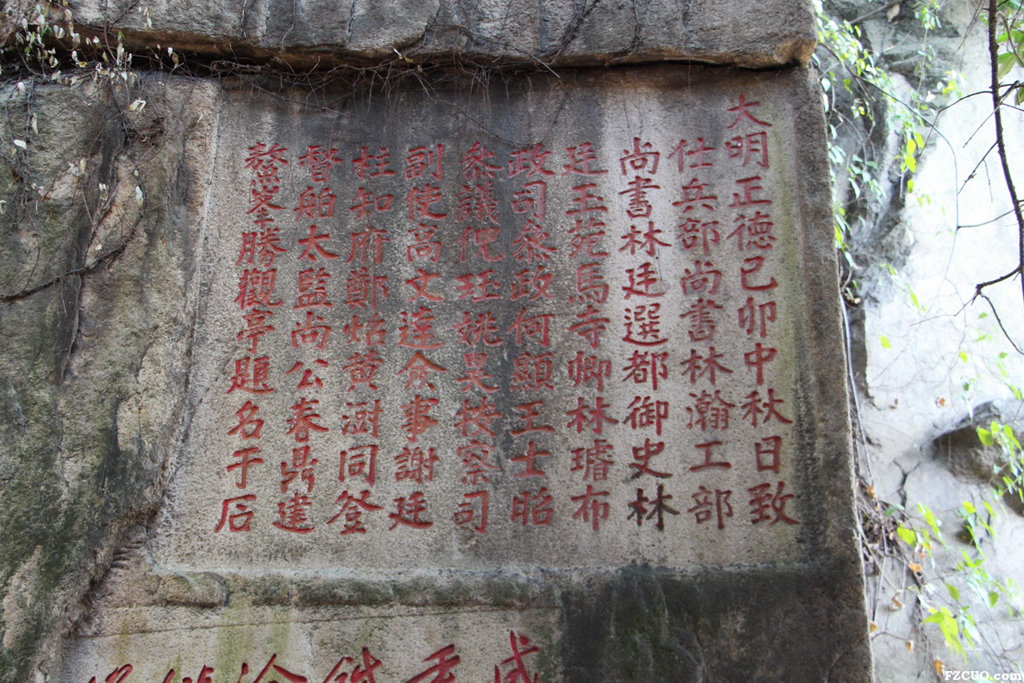 大明正德己卯中秋日致
仕兵部尚書林瀚工部
尚書林廷選都御史林
廷玉苑馬寺卿林璿布
政司叅政何顯王士昭
叅議倪珏姚昊按察司
副使高文達僉事謝廷
柱知府鄭炤黃澍同登
督舶太監尚公春鼎建
鰲峯勝觀亭題名于石
FZCUO.com